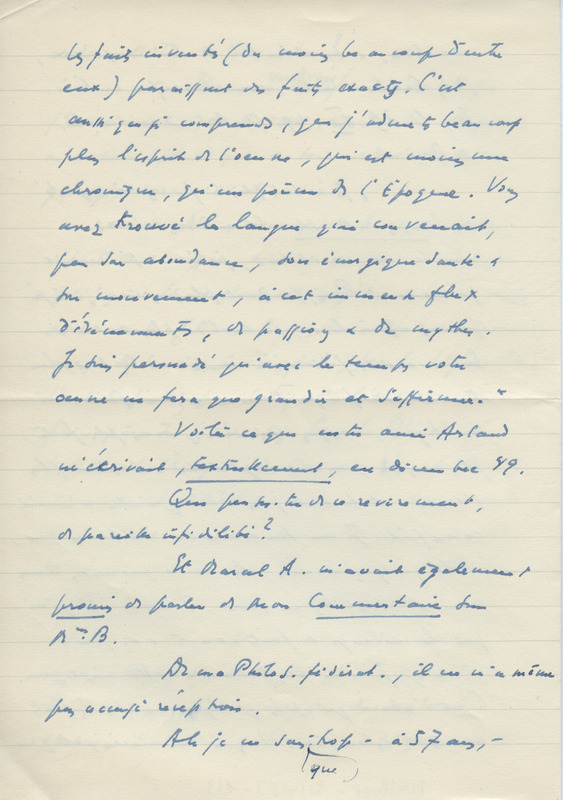 les faits inventés (du moins beaucoup d'entre
eux) paraissent des faits exacts. C'est
aussi que je comprends, que j'admets beaucoup
plus l'esprit de l'oeuvre, qui est moins une
chronique, qu'un poème de l'Épopée. Vous
avez trouvé la langue qui convenait,
par son abondance, son énergique santé &
son mouvement, à cet immense flux
d'événements, de passions & de mythes.
Je suis persuadé qu'avec le temps votre
oeuvre ne fera que grandir et s'affirmer."
Voilà ce que notre ami Arland
m'écrivait, textuellement, en décembre 49.
Que penses-tu de ce revirement,
de pareille infidélité?
Et Marcel A. m'avait également
promis de parler de mon Commentaire sur
Mme B.
De ma Philos. fédérat., il ne m'a même
pas accusé réception.
Ah je ne sais trop - à 57 ans, -
que